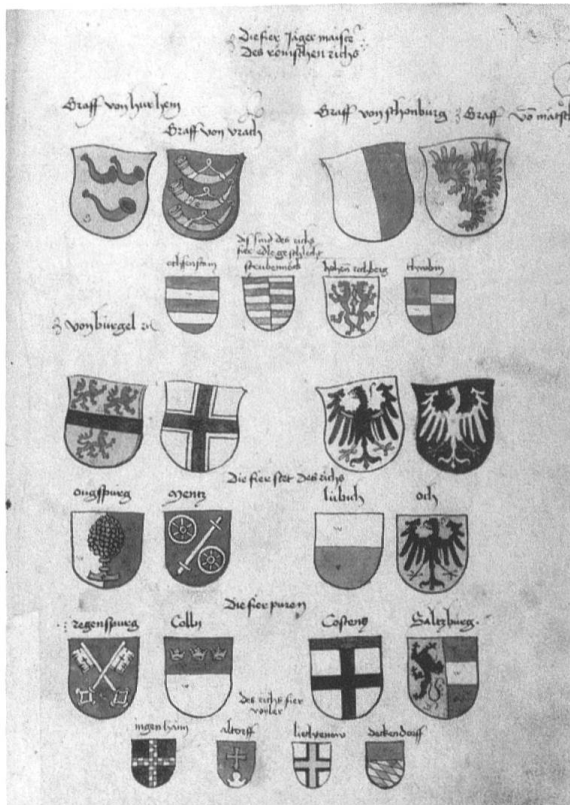 Die fier Jäger maister
Des römischen richs
Graff von hurhem
Graff von urach
Graff von schonburg
Graff vō
dis sind des richs
fier edle geschlecht
hohen rechberg
von bürgel
Die fier stet des richs
ougsspurg
Mentz
lübich
och
Die fier puren
regenspurg
Colln
Costentz
Saltzburg
des richs fier
altorff
deckendorff